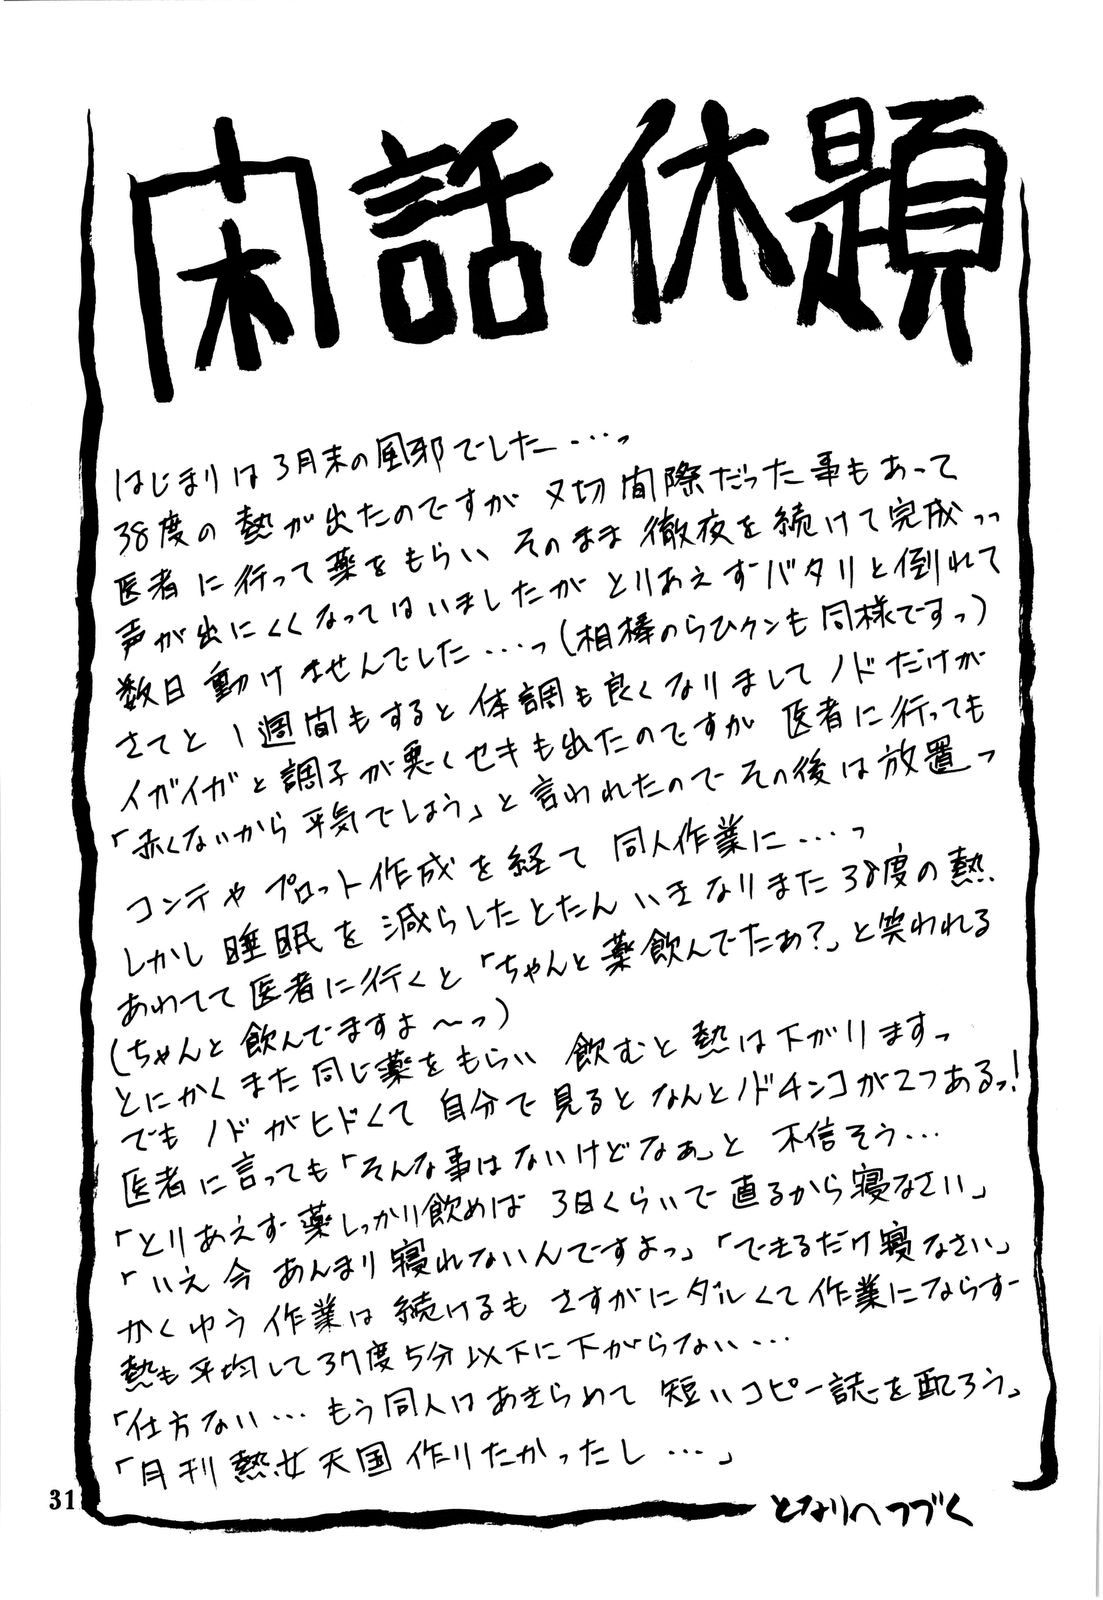 閑話休題
はじまりは3月末の風邪でした…っ
38度の熱が出たのですが〆切間際だった事もあって
医者に行って薬をもらい そのまま徹夜を続けて完成っっ
声が出にくくなってはいましたが とりあえずバタリと倒れて
数日動けませんでした…っ(相棒のらひクンも同様ですっ)
さてと 1週間もすると体調も良くなりまして ノドだけが
イガイガと調子が悪くセキも出たのですが 医者に行っても
「赤くないから平気でしょう」と言われたので その後は放置っ
コンテやプロット作成を経て 同人作業に…っ
しかし睡眠を減らしたとたん いきなりまた38度の熱
あわてて医者に行くと「ちゃんと薬飲んでたぁ?」と笑われる
(ちゃんと飲んでますよ〜っ)
とにかくまた同じ薬をもらい 飲むと熱は下がりますっ
でもノドがヒドくて 自分で見ると なんとノドチンコが2つあるっ!
医者に言っても「そんな事はないけどなぁ」と 不信そう…
「とりあえず薬しっかり飲めば 3日くらいで直るから寝なさい」
「いえ今あんまり寝れないんですよっ」「できるだけ寝なさい」
かくゆう作業は続けるも さすがにダルくて作業にならず
熱も平均して37度5分以下に下がらない…
「仕方ない…もう同人はあきらめて 短いコピー誌を配ろう」
「月刊熱女天国作りたかったし…」
となりへつづく
31